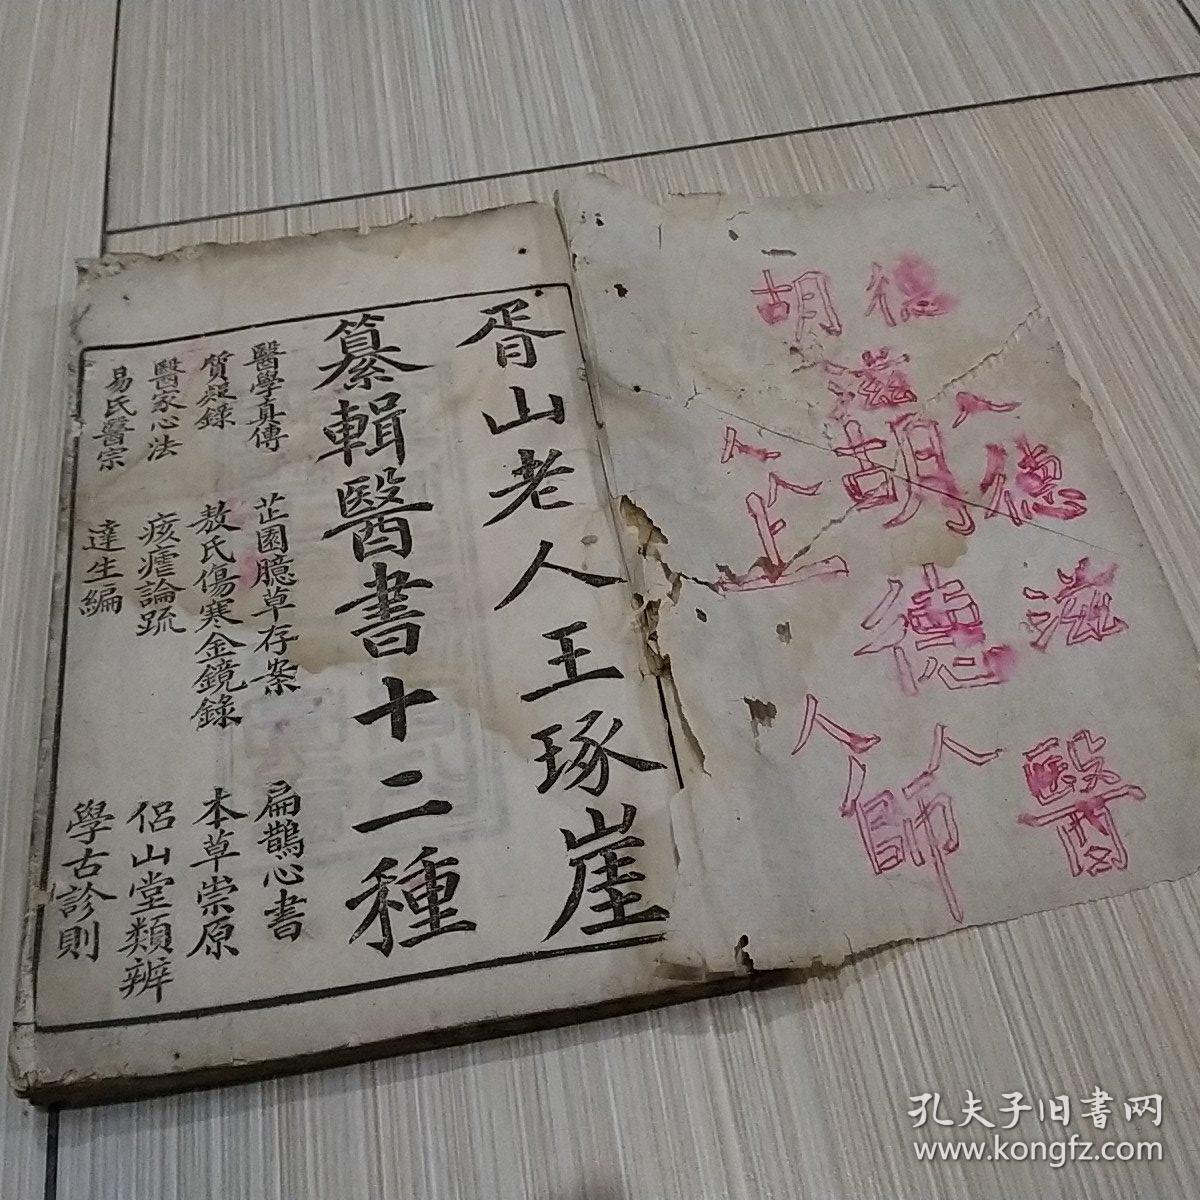 胥山老人王琢崖
纂輯醫書十二種
醫學真傳
芷園臆草存案
扁鵲心書
質疑錄
敖氏傷寒金鏡錄
本草崇原
醫家心法
痎瘧論疏
侶山堂類辨
易氏醫宗
達生編
學古診則
胡德
滋
胡德
德滋
醫師
孔夫子旧書网
www.kongfz.com